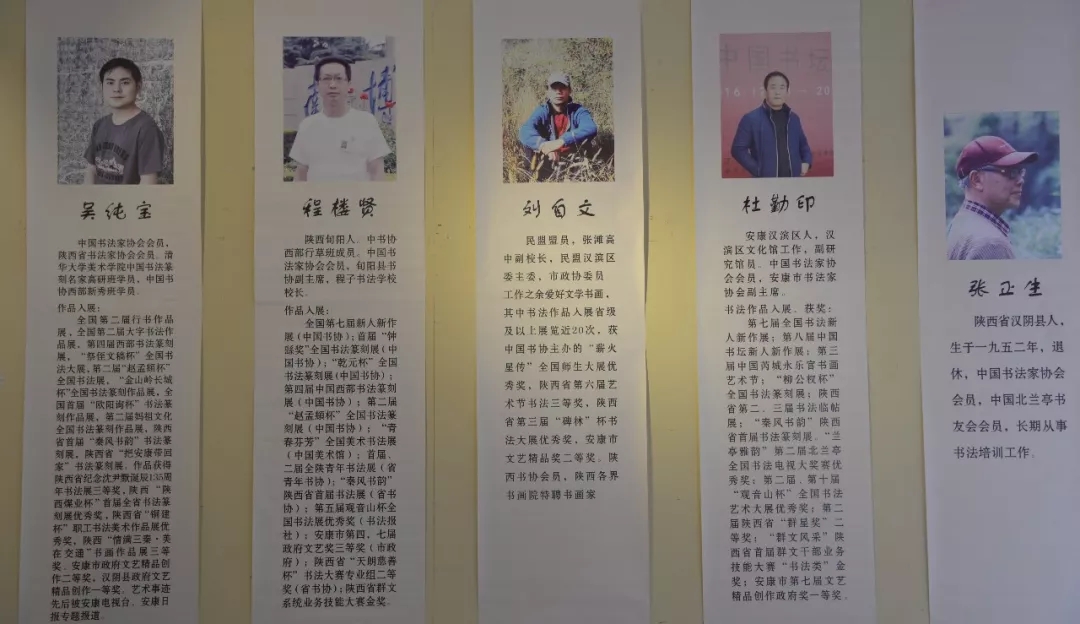 吴纯宝
中国书法家协会会员,
陕西省书法家协会会员。清
华大学美术学院中国书法篆
刻名家高研班学员,中国书
协西部新秀班学员。
作品入展:
全国第二届行书作品
展,全国第二届大字书法作
品展,第四届西部书法篆刻
展,“祭侄文稿杯”全国书
法大展,第二届“赵孟頫杯”
全国书法展,“金山岭长城
杯”全国书法篆刻作品展,全
国首届“欧阳询杯”书法篆
刻作品展,第二届妈祖文化
全国书法篆刻作品展,陕西
省首届“秦风书韵”书法篆
刻展,陕西省“把安康带回
家”书法篆刻展。作品获得
陕西省纪念沈尹默诞辰135周
年书法展三等奖,陕西“陕
西煤业杯”首届全省书法篆
刻展优秀奖,陕西省“铜建
杯”职工书法美术作品展优
秀奖,陕西“情满三秦·美
在交通”书画作品展三等
奖。安康市政府文艺精品创
作二等奖,汉阴县政府文艺
精品创作一等奖。艺术事迹
先后被安康电视台、安康日
报专题报道。
程楼贤
陕西旬阳人。中书协
西部行草班成员。中国书
法家协会会员,旬阳县书
协副主席,程子书法学校
校长。
作品入展:
全国第七届新人新作
展(中国书协);首届“钟
繇奖”全国书法篆刻展(中
国书协);“乾元杯”全国
书法篆刻展(中国书协);
第四届中国西部书法篆刻
展(中国书协);第二届
“赵孟頫杯”全国书法篆
刻展(中国书协);“青
春芬芳”全国美术书法展
(中国美术馆);首届、
二届全陕青年书法展(省
青年书协);“秦风书韵”
陕西省首届书法展(省书
协);第五届观音山杯全
国书法展优秀奖(书法报
社);安康市第四、七届
政府文艺奖三等奖(市政
府);陕西省“天朗慈善
杯”书法大赛专业组二等
奖(省书协);陕西省群文
系统业务技能大赛金奖。
刘自文
民盟盟员,张滩高
中副校长,民盟汉滨区
委主委,市政协委员
工作之余爱好文学书画,
其中书法作品入展省级
及以上展览近20次,获
中国书协主办的“薪火
星传”全国师生大展优
秀奖,陕西省第六届艺
术节书法三等奖,陕西
省第三届“碑林”杯书
法大展优秀奖,安康市
文艺精品奖二等奖。陕
西书协会员,陕西各界
书画院特聘书画家
中国书坛
16
20
杜勤印
安康汉滨区人,汉
滨区文化馆工作,副研
究馆员。中国书法家协
会会员,安康市书法家
协会副主席。
书法作品入展、获奖:
第七届全国书法新
人新作展;第八届中国
书坛新人新作展;第三
届中国芮城永乐宫书画
艺术节;“柳公权杯”
全国书法篆刻展;陕西
省第二、三届书法临帖
展;“秦风书韵”陕西
省首届书法篆刻展。“兰
亭雅韵”第二届北兰亭
全国书法电视大奖赛优
秀奖;第二届、第十届
“观音山杯”全国书法
艺术大展优秀奖;第二
届陕西省“群星奖”二
等奖;“群文风采”陕
西省首届群文干部业务
技能大赛“书法类”金
奖;安康市第七届文艺
精品创作政府奖一等奖。
张正生
陕西省汉阴县人,
生于一九五二年,退
休,中国书法家协会
会员,中国北兰亭书
友会会员,长期从事
书法培训工作。